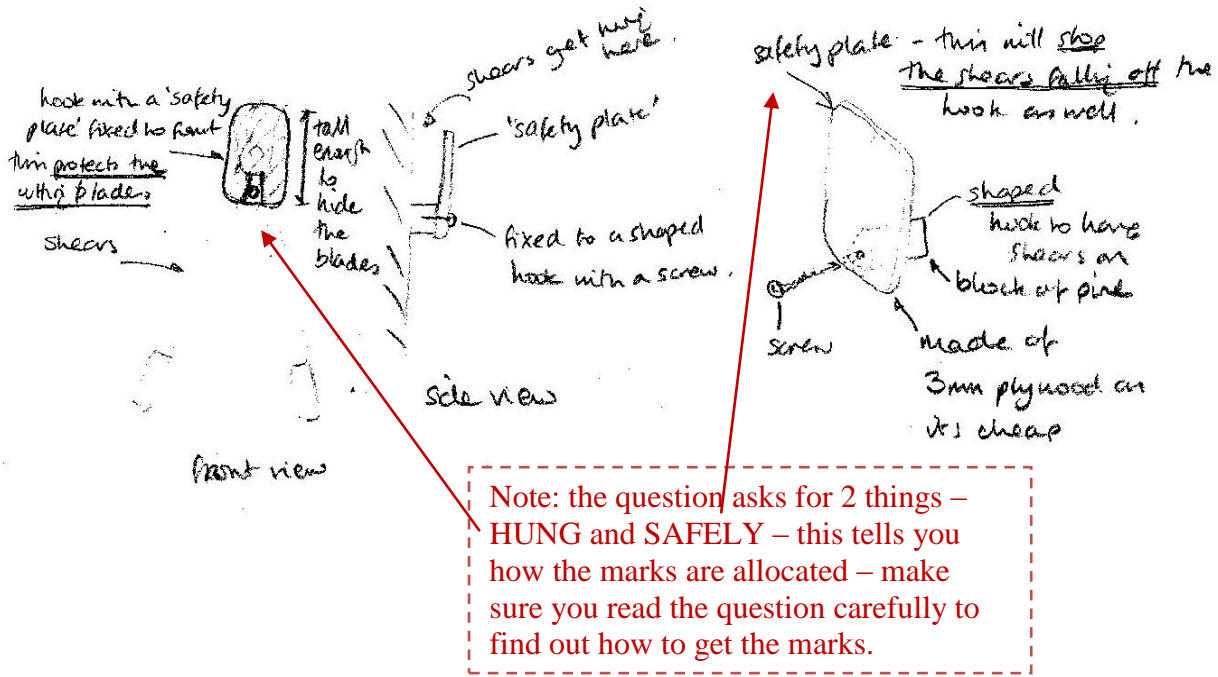 hook with a 'safety
plate' fixed to front
this protects the
cutting blades
shears
tall
enough
to
hide
the
blades
front view
shears get hung
here.
'safety plate'
fixed to a shaped
hook with a screw.
side view
safety plate - this will stop
the shears falling off the
hook as well.
shaped
hook to hang
shears on
block of pine
screw
made of
3mm plywood as
its cheap
Note: the question asks for 2 things –
HUNG and SAFELY – this tells you
how the marks are allocated – make
sure you read the question carefully to
find out how to get the marks.